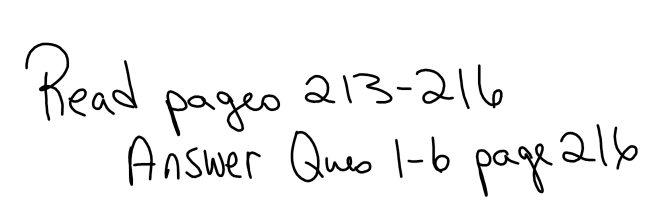 Read pages 213-216
Answer Ques 1-6 page 216